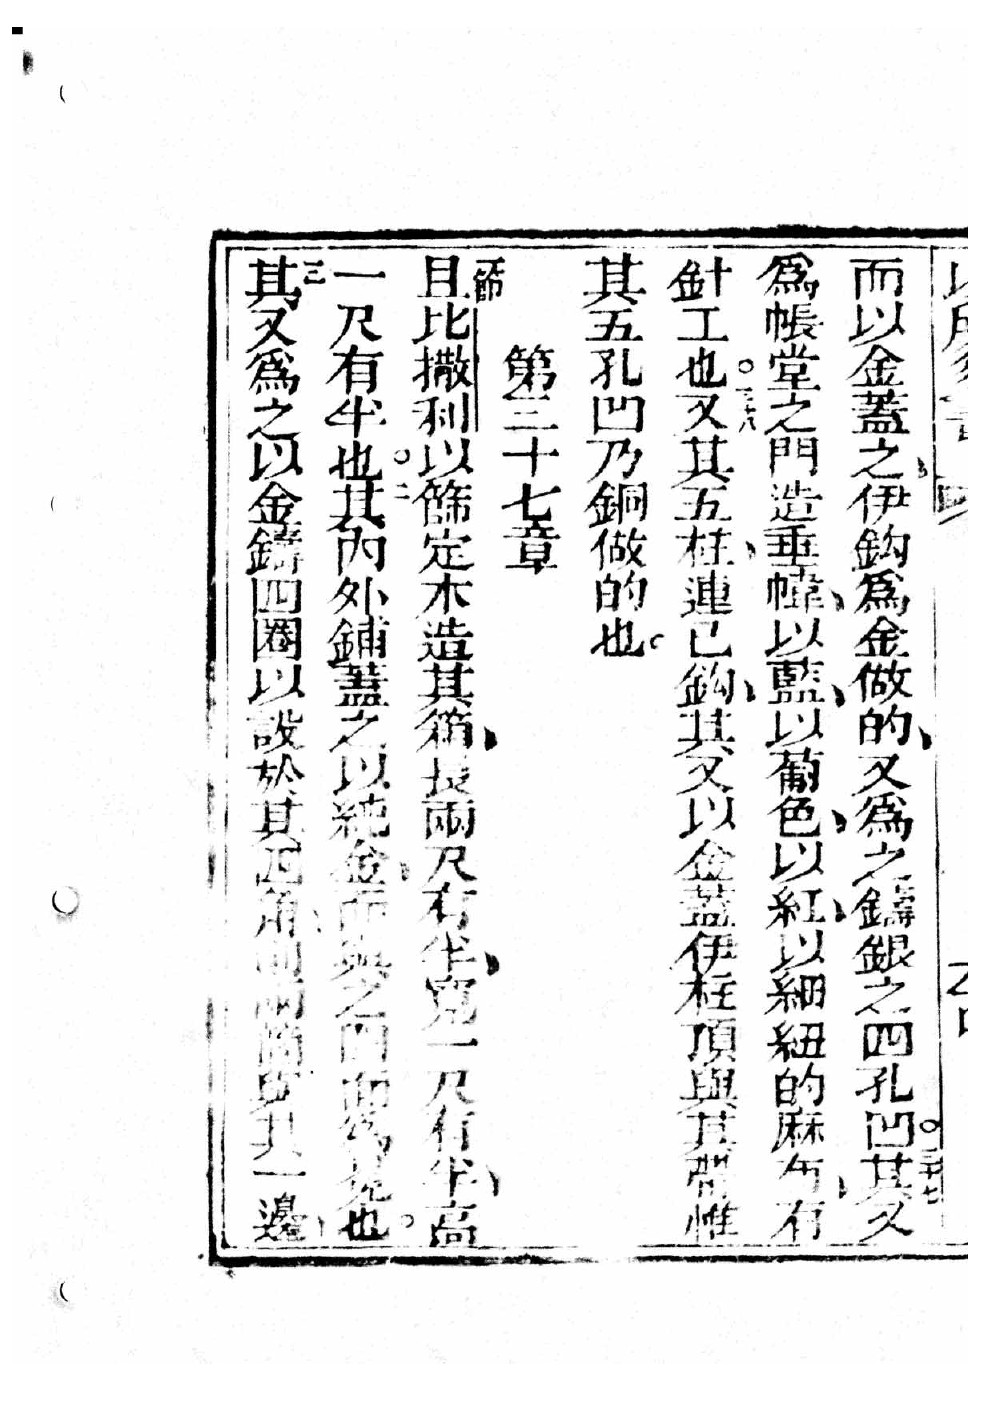 而以金蓋之伊鈎爲金做的、又爲之鑄銀之四孔凹。三十七其又
爲帳堂之門造垂幃、以藍、以葡色、以紅、以細紐的麻布、有
針工也。三十八又其五柱、連已鈎、其又以金蓋伊柱頂與其帶惟
其五孔凹乃銅做的也。
第三十七章
一節且比撒利以篩定木造其箱、長兩尺有半、寬一尺有半、高
一尺有半也。二其內外鋪蓋之以純金、而與之四面爲 也。
三其又爲之以金鑄四圈、以設於其四角、 兩箇與其一邊、